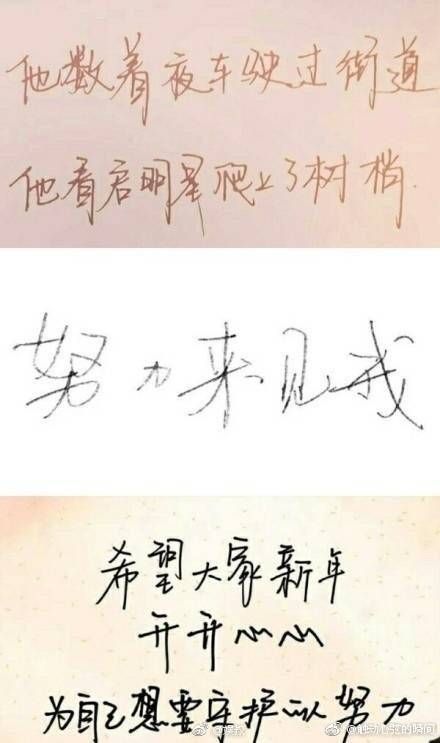 他数着夜车驶过街道
他看启明星爬上了树梢.
努力来见我
希望大家新年
开开心心
为自己想要守护以努力